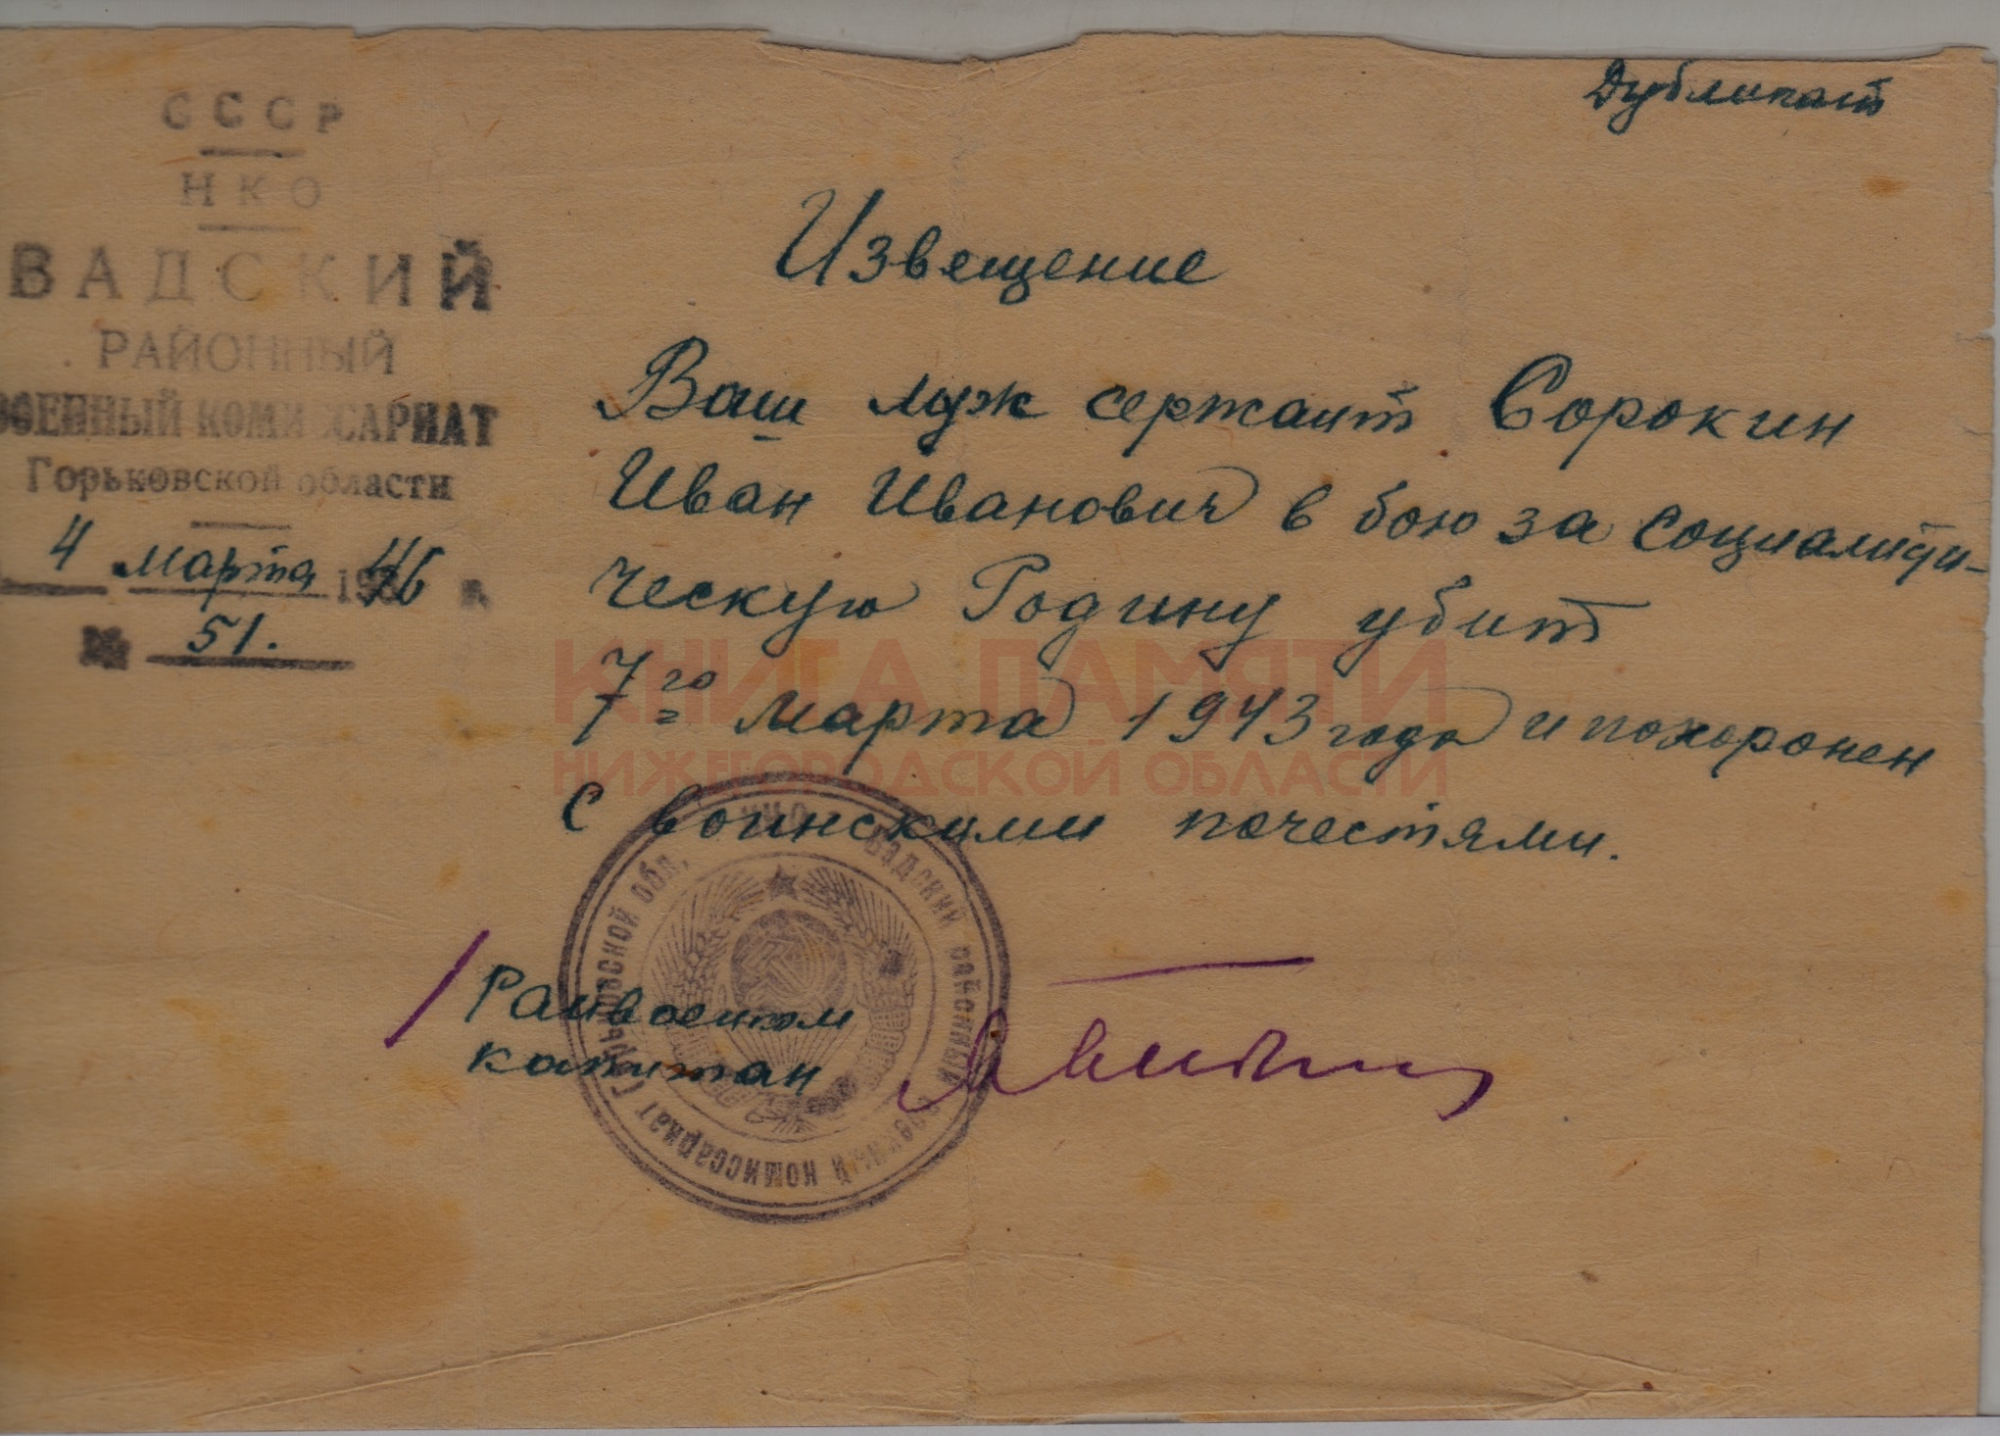 Дубликат
СССР
НКО
ВАДСКИЙ
РАЙОННЫЙ
ВОЕННЫЙ КОМИССАРИАТ
Горьковской области
4 марта 1946 г.
№ 51.
Извещение
Ваш муж сержант Сорокин
Иван Иванович в бою за социалисти-
ческую Родину убит
7го марта 1943 года и похоронен
с воинскими почестями.
КНИГА ПАМЯТИ
НИЖЕГОРОДСКОЙ ОБЛАСТИ
Райвоенком
капитан
НКО Вадский районный военный комиссариат Горьковской обл.